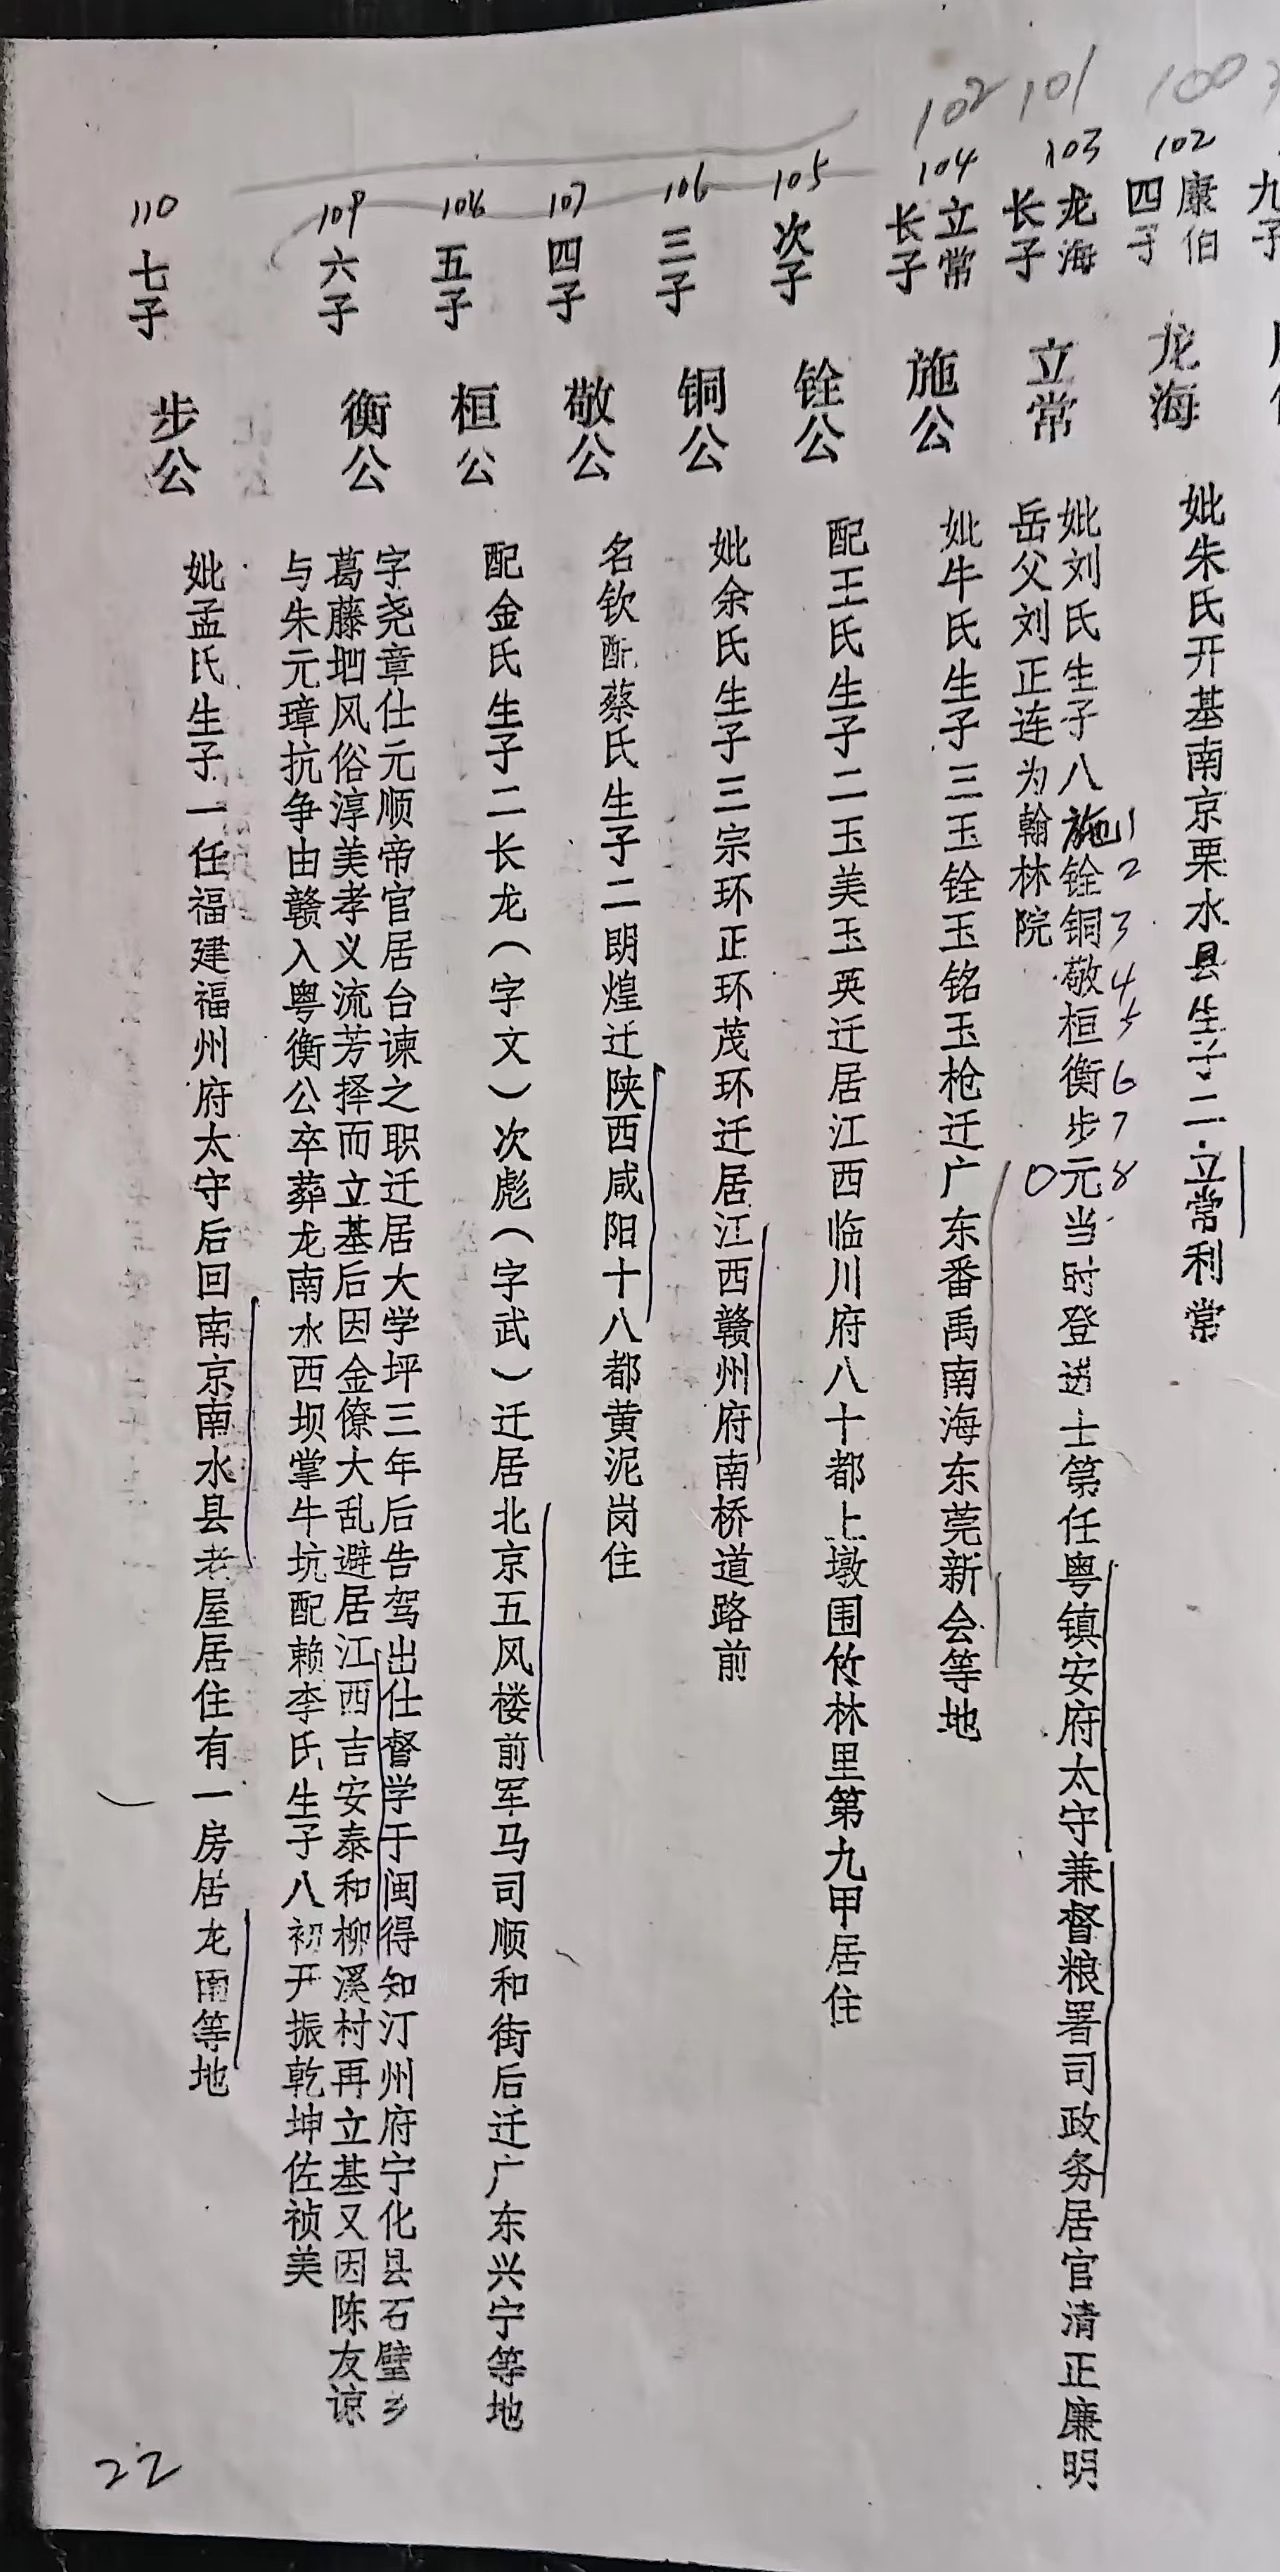 100
101
102
九子
102
康伯
四子
龙海
妣朱氏开基南京栗水县生子二立常利常
103
龙海
长子
立常
妣刘氏生子八施铨铜敬桓衡步元当时登进士第任粤镇安府太守兼督粮署司政务居官清正廉明
1
2
3
4
5
6
7
8
岳父刘正连为翰林院
104
立常
长子
施公
妣牛氏生子三玉铨玉铭玉枪迁广东番禹南海东莞新会等地
105
次子
铨公
配王氏生子二玉美玉英迁居江西临川府八十都上墩围竹林里第九甲居住
106
三子
铜公
妣余氏生子三宗环正环茂环迁居江西赣州府南桥道路前
107
四子
敬公
名钦配蔡氏生子二明煌迁陕西咸阳十八都黄泥岗住
108
五子
桓公
配金氏生子二长龙（字文）次彪（字武）迁居北京五风楼前军马司顺和街后迁广东兴宁等地
109
六子
衡公
字尧章仕元顺帝官居台谏之职迁居大学坪三年后告驾出仕督学于闽得知汀州府宁化县石璧乡
葛藤垇风俗淳美孝义流芳择而立基后因金僚大乱避居江西吉安泰和柳溪村再立基又因陈友谅
与朱元璋抗争由赣入粤衡公卒葬龙南水西坝掌牛坑配赖李氏生子八初开振乾坤佐祯美
110
七子
步公
妣孟氏生子一任福建福州府太守后回南京南水县老屋居住有一房居龙南等地
22